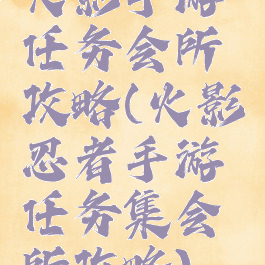 火影手游
任务会所
攻略(火影
忍者手游
任务集会
所攻略)